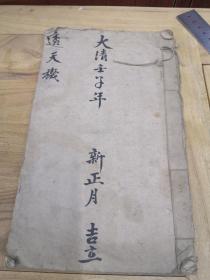 大清壬子年 新正月 吉立
透天機